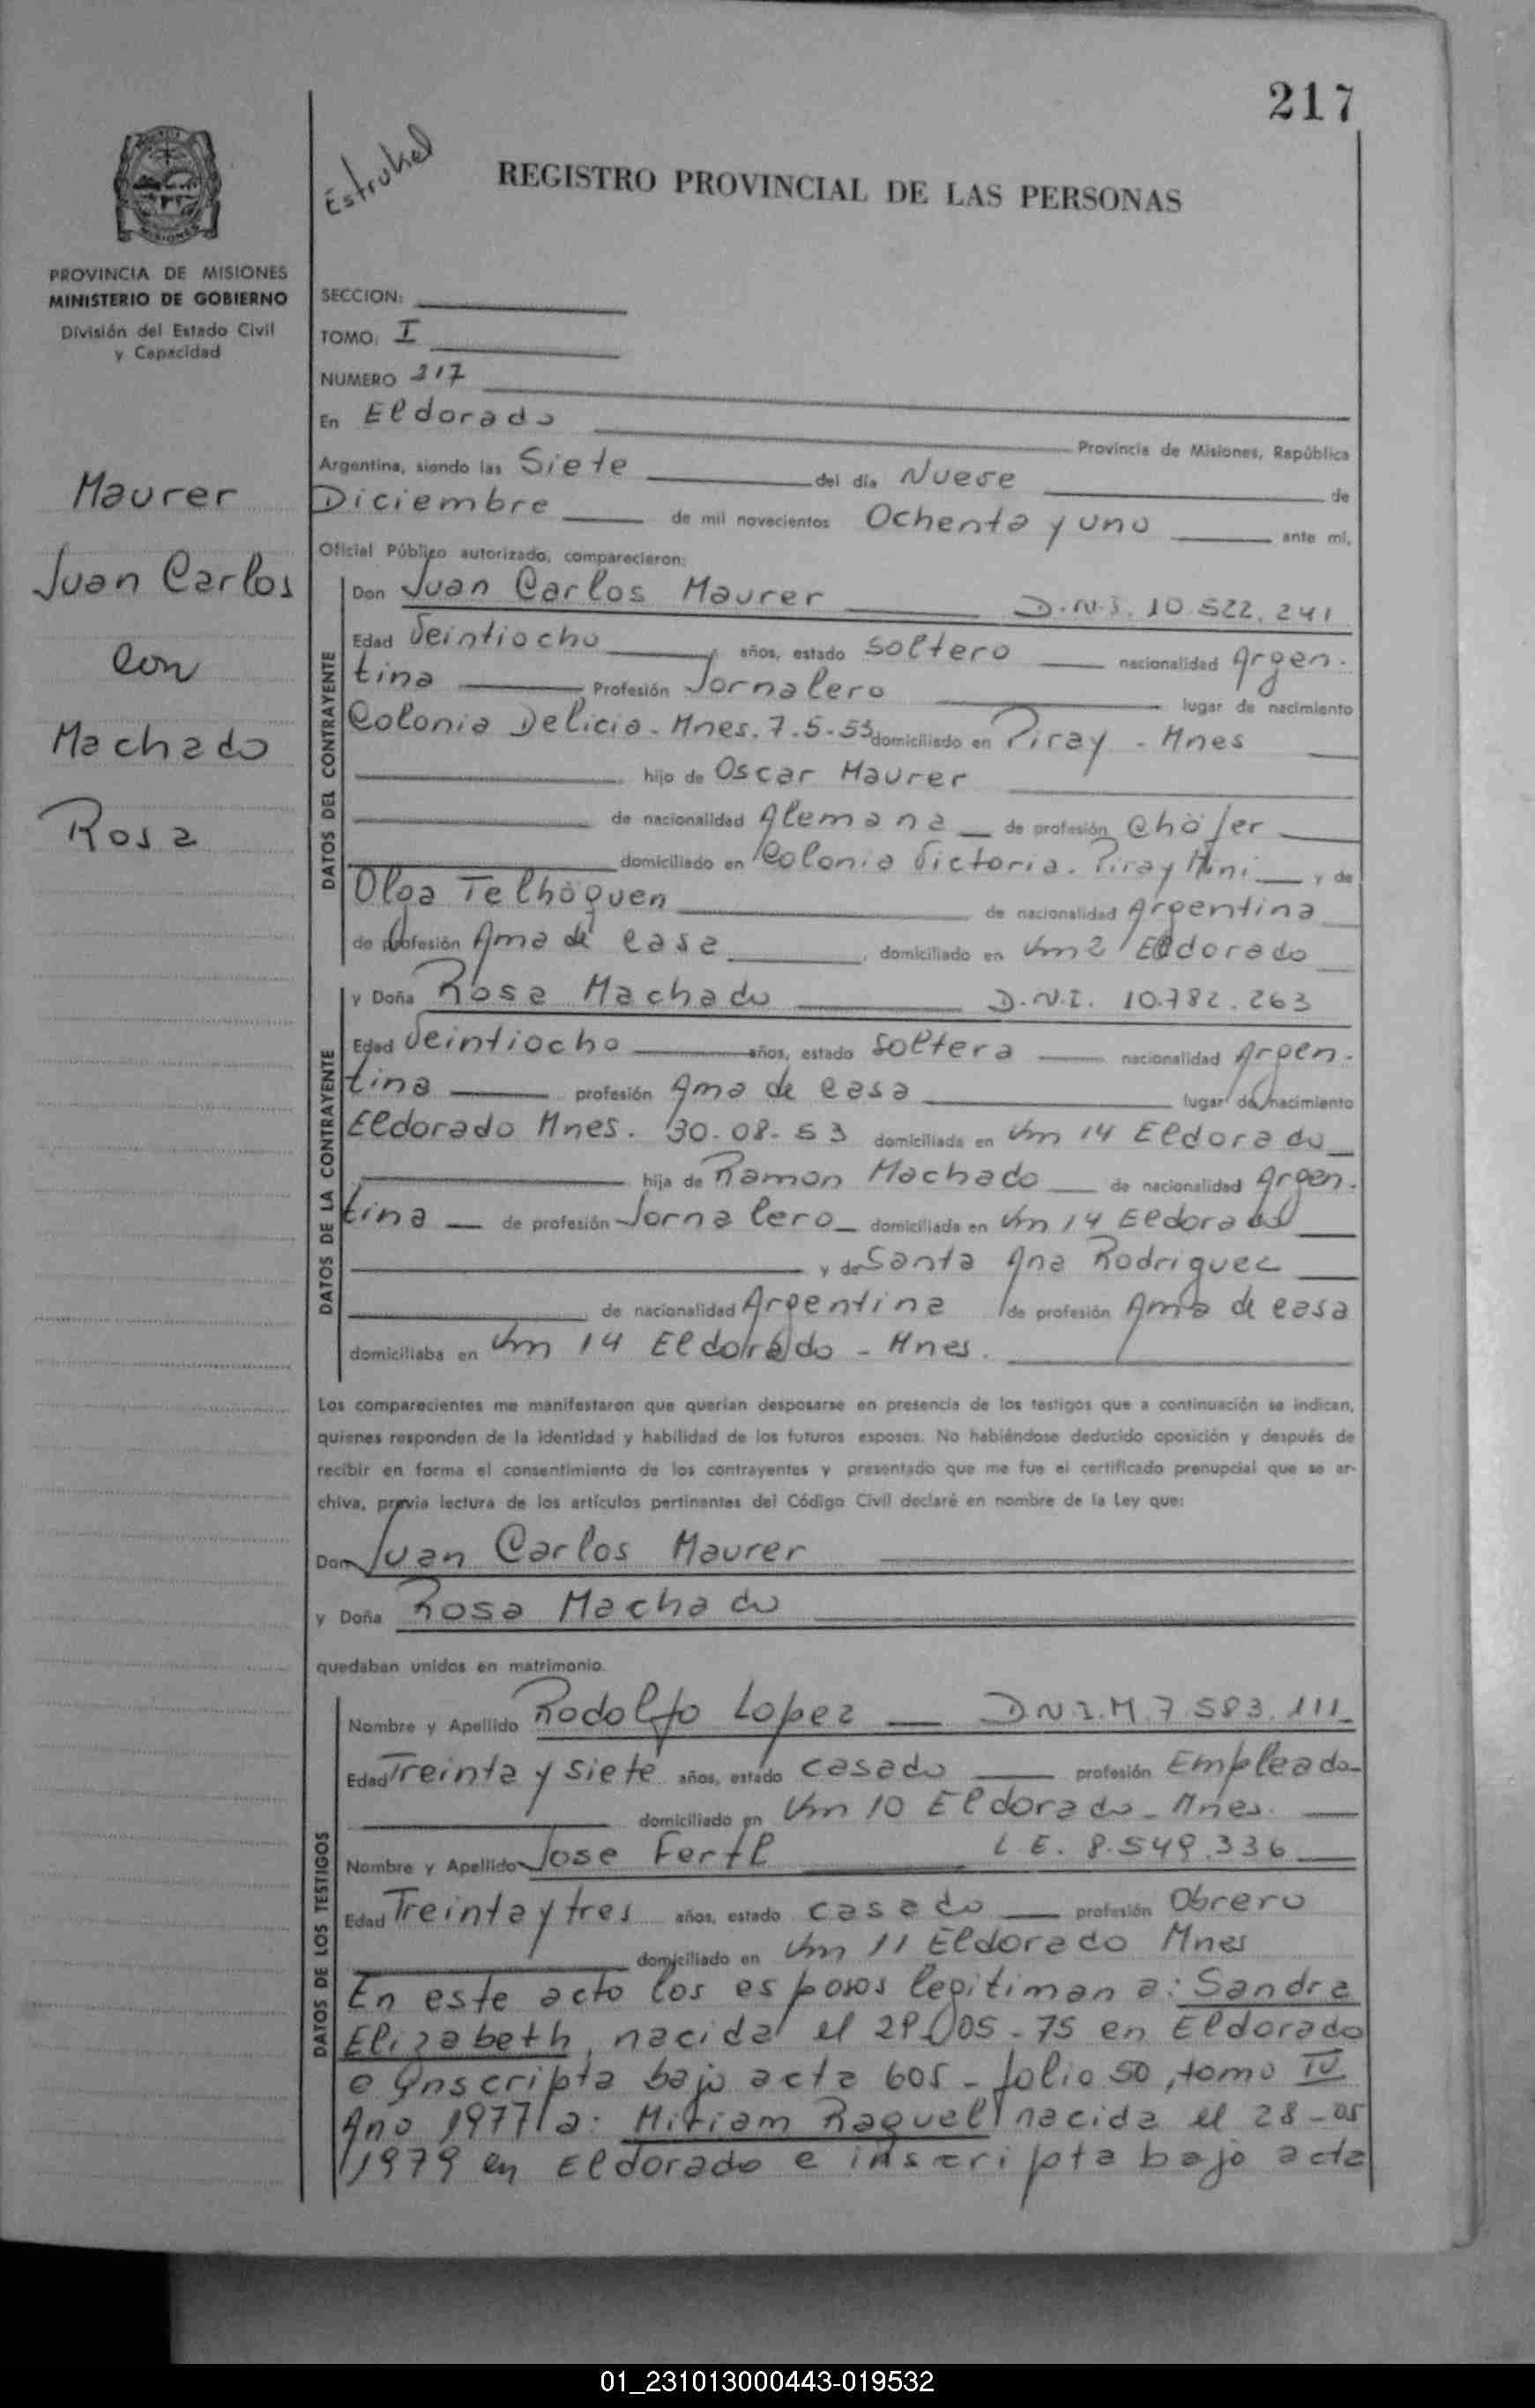 217
Estrukel
REGISTRO PROVINCIAL DE LAS PERSONAS
MISIONES
PROVINCIA DE MISIONES
MINISTERIO DE GOBIERNO
División del Estado Civil
y Capacidad
SECCION:
TOMO: I
NUMERO 217
En Eldorado Provincia de Misiones, República
Argentina, siendo las Siete del día Nueve de
Diciembre de mil novecientos Ochenta y uno ante mí,
Oficial Público autorizado, comparecieron:
Maurer
Juan Carlos
con
Machado
Rosa
DATOS DEL CONTRAYENTE
Don Juan Carlos Maurer D.N.I. 10.522.241
Edad Veintiocho años, estado soltero nacionalidad Argen-
tina Profesión Jornalero lugar de nacimiento
Colonia Delicia - Mnes. 7-5-53 domiciliado en Piray - Mnes
hijo de Oscar Maurer
de nacionalidad Alemana de profesión Chofer
domiciliado en Colonia Victoria. Piray Mini y de
Olga Telhoguen de nacionalidad Argentina
de profesión Ama de casa, domiciliado en Km 2 Eldorado
DATOS DE LA CONTRAYENTE
y Doña Rosa Machado D.N.I. 10.782.263
Edad Veintiocho años, estado soltera nacionalidad Argen-
tina profesión Ama de casa lugar de nacimiento
Eldorado Mnes. 30-08-53 domiciliada en Km 14 Eldorado
hija de Ramon Machado de nacionalidad Argen-
tina de profesión Jornalero domiciliada en Km 14 Eldorado
y de Santa Ana Rodriguez
de nacionalidad Argentina de profesión Ama de casa
domiciliaba en Km 14 Eldorado - Mnes.
Los comparecientes me manifestaron que querían desposarse en presencia de los testigos que a continuación se indican,
quienes responden de la identidad y habilidad de los futuros esposos. No habiéndose deducido oposición y después de
recibir en forma el consentimiento de los contrayentes y presentado que me fue el certificado prenupcial que se ar-
chiva, previa lectura de los artículos pertinentes del Código Civil declaré en nombre de la Ley que:
Don Juan Carlos Maurer
y Doña Rosa Machado
quedaban unidos en matrimonio.
DATOS DE LOS TESTIGOS
Nombre y Apellido Rodolfo Lopez D.N.I.M. 7.583.111
Edad Treinta y siete años, estado casado profesión Empleado
domiciliado en Km 10 Eldorado - Mnes.
Nombre y Apellido Jose Fertl L.E. 8.549.336
Edad Treinta y tres años, estado casado profesión Obrero
domiciliado en Km 11 Eldorado Mnes
En este acto los esposos legitiman a: Sandra
Elizabeth, nacida el 05-75 en Eldorado
e Inscripta bajo acta 605 - folio 50, tomo IV
Año 1977 a: Miriam Raquel nacida el 28-05
1979 en Eldorado e inscripta bajo acta
01_231013000443-019532